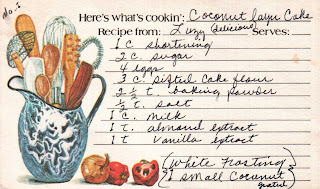 No. 1
Here's what's cookin': Coconut layer Cake
Recipe from: Lizzy (delicious) Serves:
1 c shortening
2 c. sugar
4 eggs
3 c sifted cake flour
2 1/2 t. baking powder
1/2 t. salt
1 c. milk
1 t. almond extract
1 t vanilla extract
(White Frosting)
(1 small Coconut)
grated